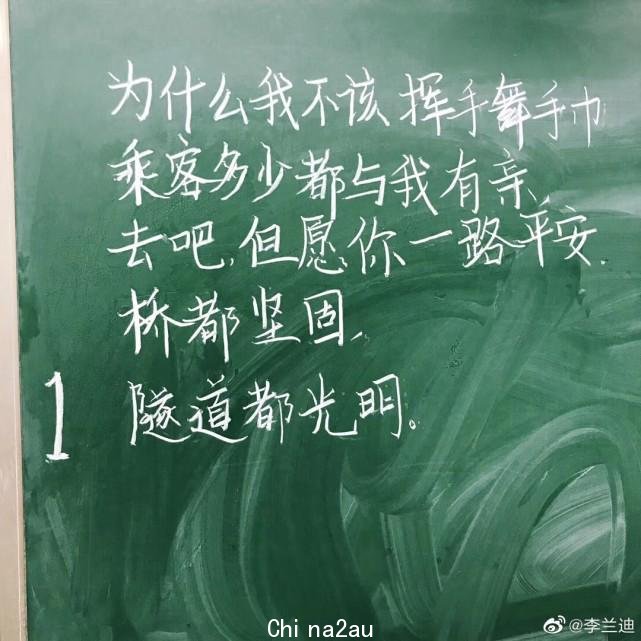 为什么我不该挥手舞手巾
乘客多少都与我有亲、
去吧,但愿你一路平安.
桥都坚固、
1 隧道都光明。
Chi na2au
@李兰迪